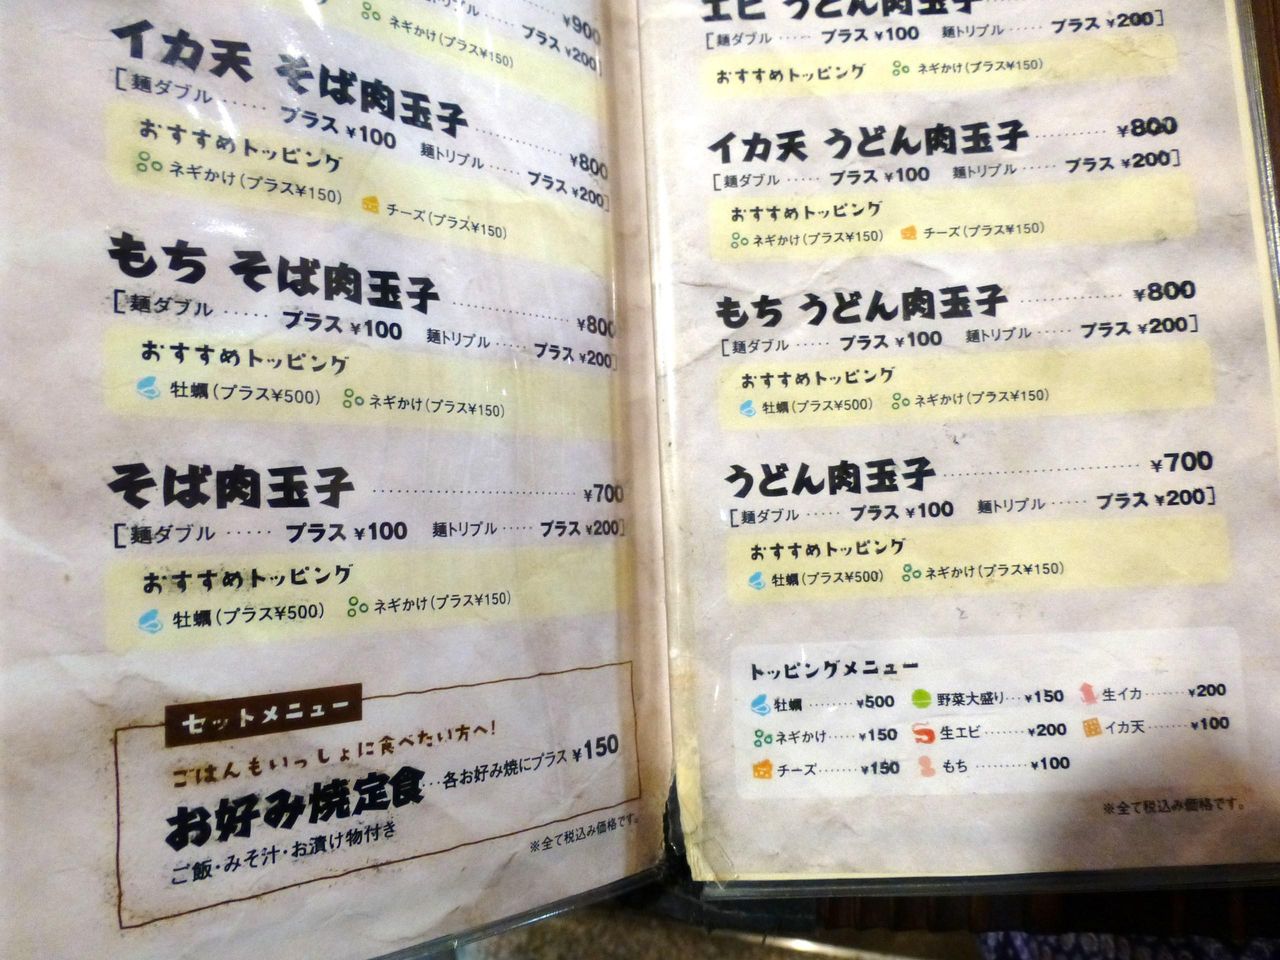 ¥900
ネギかけ(プラス¥150)
プラス ¥200]
イカ天 そば肉玉子 ¥800
[麺ダブル ····· プラス ¥100 麺トリプル ····· プラス ¥200]
おすすめトッピング
ネギかけ(プラス¥150) チーズ(プラス¥150)
もち そば肉玉子 ¥800
[麺ダブル ····· プラス ¥100 麺トリプル ····· プラス ¥200]
おすすめトッピング
牡蠣(プラス¥500) ネギかけ(プラス¥150)
そば肉玉子 ¥700
[麺ダブル ····· プラス ¥100 麺トリプル ····· プラス ¥200]
おすすめトッピング
牡蠣(プラス¥500) ネギかけ(プラス¥150)
セットメニュー
ごはんもいっしょに食べたい方へ!
お好み焼定食···各お好み焼にプラス ¥150
ご飯・みそ汁・お漬け物付き
※全て税込み価格です。
エビ うどん肉玉子
[麺ダブル ····· プラス ¥100 麺トリプル ····· プラス ¥200]
おすすめトッピング ネギかけ(プラス¥150)
イカ天 うどん肉玉子 ¥800
[麺ダブル ····· プラス ¥100 麺トリプル ····· プラス ¥200]
おすすめトッピング
ネギかけ(プラス¥150) チーズ(プラス¥150)
もち うどん肉玉子 ¥800
[麺ダブル ····· プラス ¥100 麺トリプル ····· プラス ¥200]
おすすめトッピング
牡蠣(プラス¥500) ネギかけ(プラス¥150)
うどん肉玉子 ¥700
[麺ダブル ····· プラス ¥100 麺トリプル ····· プラス ¥200]
おすすめトッピング
牡蠣(プラス¥500) ネギかけ(プラス¥150)
トッピングメニュー
牡蠣 ········ ¥500 野菜大盛り··· ¥150 生イカ ······· ¥200
ネギかけ····· ¥150 生エビ ······· ¥200 イカ天 ······· ¥100
チーズ······· ¥150 もち ········· ¥100
※全て税込み価格です。